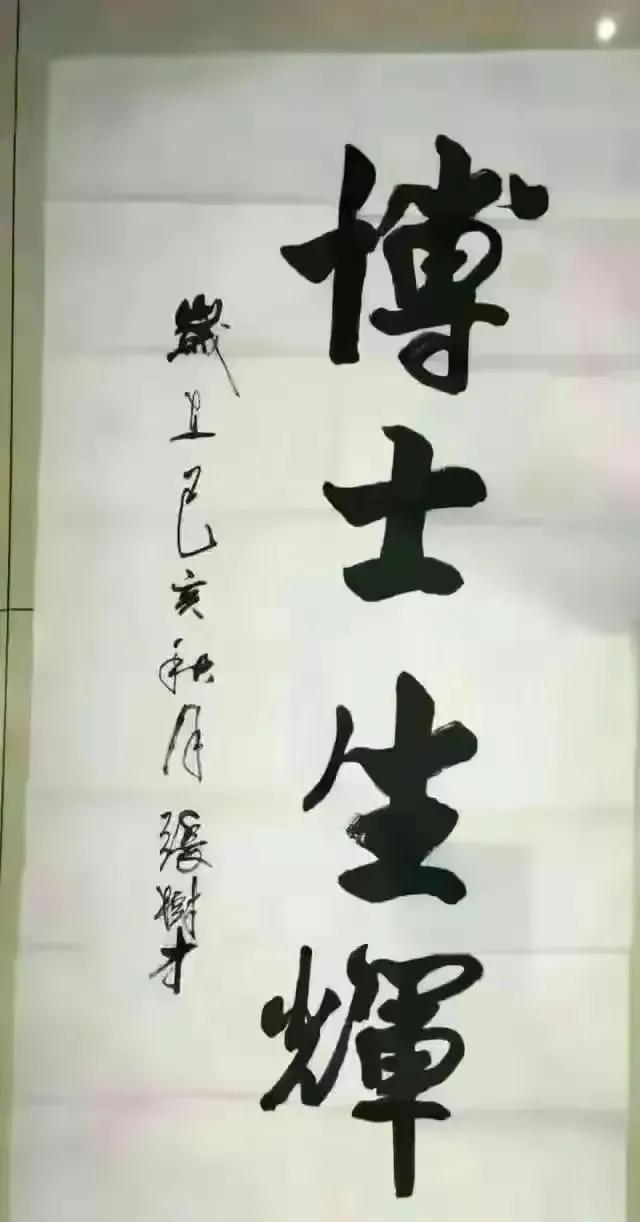 博士生輝
歲且己亥秋月張樹才